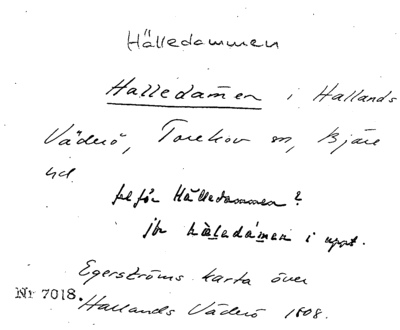 Hälledammen
Halledam̄en i Hallands
Väderö, Torekov sn, Bjäre
hd
fel för Hälledammen?
jfr hä̱ledám̱en i uppt.
Egerströms karta över
Nr 7018. Hallands Väderö 1808.